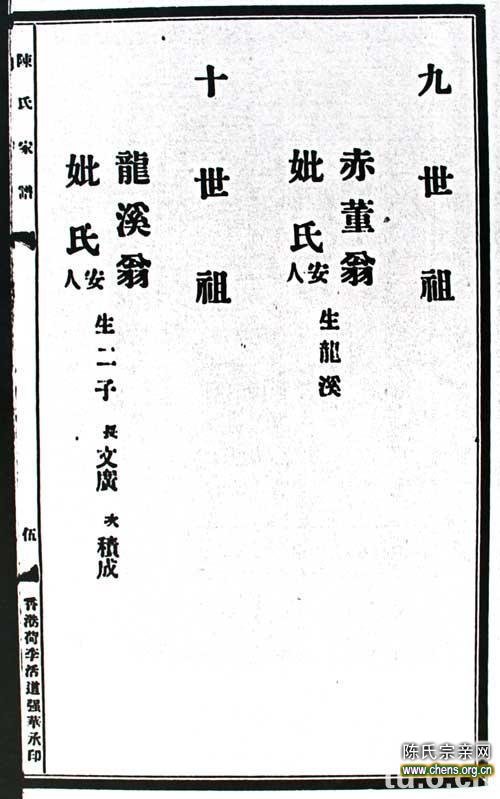 九世祖
赤董翁
妣氏安人
生龍溪
十世祖
龍溪翁
妣氏安人
生二子 長文廣 次積成
陳氏家譜
伍
香港荷李活道强華承印
陈氏宗亲网
www.chens.org.cn